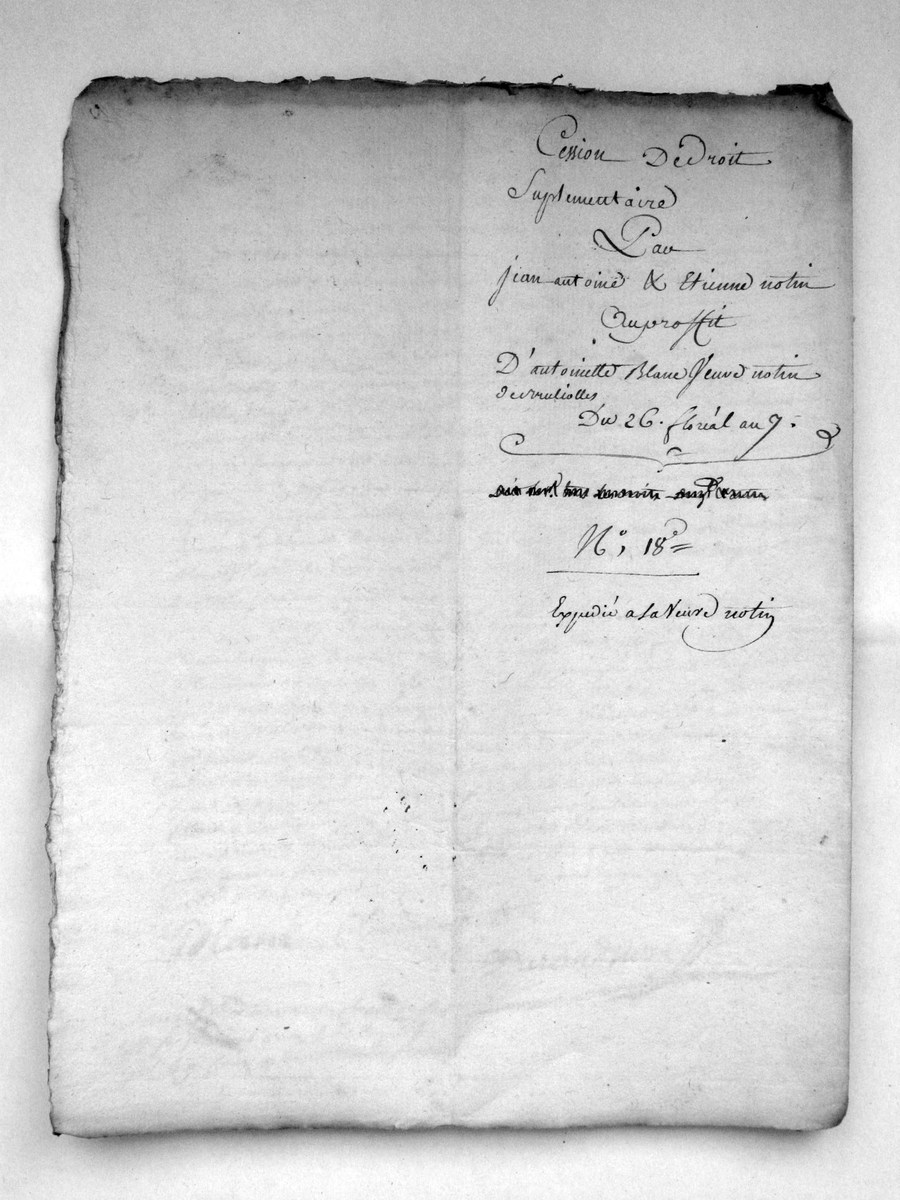 Cession De droit
Suplementaire
Par
jean antoine & Etienne notin
Au proffit
D'antoinette Blanc Veuve notin
Du 26. floréal an 7.
N°, 18
Expedié a La Veuve notin